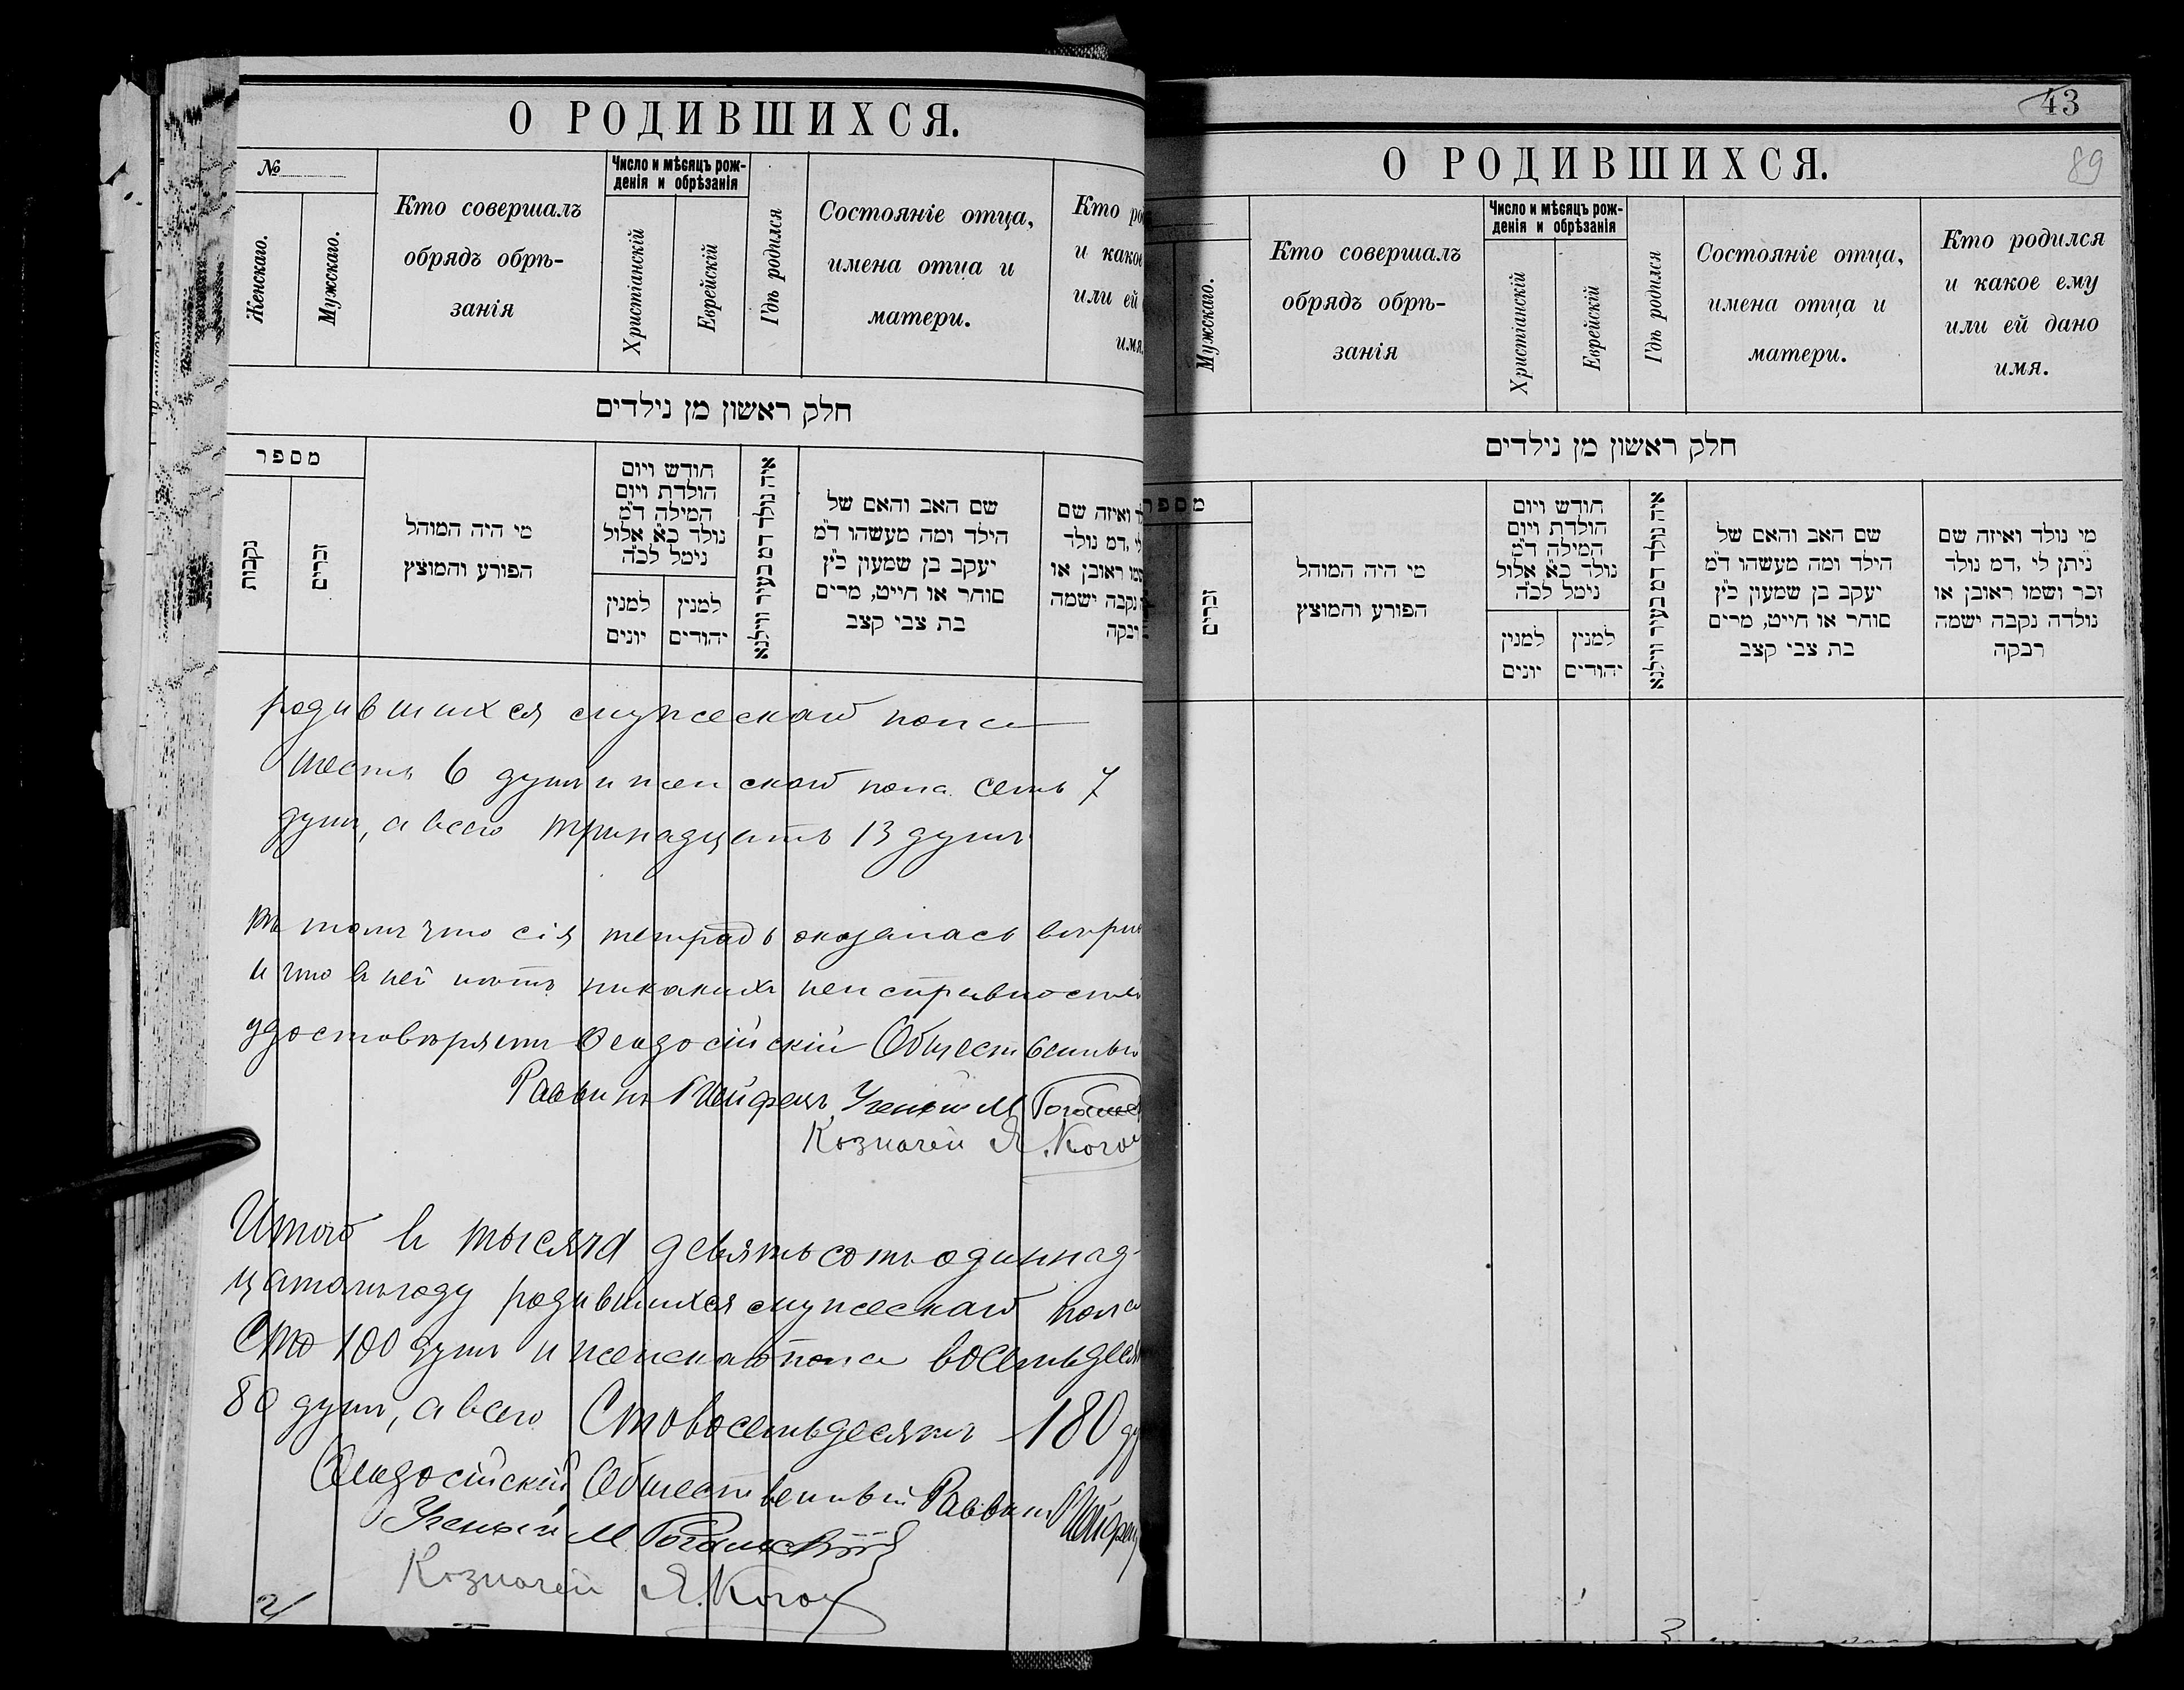 О РОДИВШИХСЯ.
№
Женскаго.
Мужскаго.
Кто совершалъ
обрядъ обрѣ-
занія
Число и мѣсяцъ рож-
денія и обрѣзанія
Христіанскій
Еврейскій
Гдѣ родился
Состояніе отца,
имена отца и
матери.
Кто ро
и какое
или ей
имя.
חלק ראשון מן נילדים
מספר
נקבות
זכרים
מי היה המוהל
הפורע והמוצץ
חודש ויום
הולדת ויום
המילה ד״מ
נולד כ״א אלול
נימל לכ״ה
למנין
יונים
למנין
יהודים
איה נולד דמ בעיר ווילנא
שם האב והאם של
הילד ומה מעשהו ד״מ
יעקב בן שמעון כ״ץ
סוחר או חייט, מרים
בת צבי קצב
ואיזה שם
לי, דמ נולד
ראובן או
נקבה ישמה
רבקה
родившихся мужескаго пола
шесть 6 душъ и женскаго пола семь 7
душъ, а всего тринадцать 13 душъ
въ томъ что сія тетрадь оказалась вѣрн
и что въ ней нѣтъ никакихъ неисправностей
удостовѣряетъ Ѳеодосійскій Общественный
Раввинъ Ученый М
Казначей Я.
Итого въ тысяча девятьсотъ одиннад-
цатомъ году родившихся мужескаго пола
Сто 100 душъ и женскаго пола восемьдеся
80 душъ, а всего Сто восемьдесятъ 180 ду
Ѳеодосійскій Общественный Раввинъ
Ученый М
Казначей Я.
43
89
О РОДИВШИХСЯ.
Мужскаго.
Кто совершалъ
обрядъ обрѣ-
занія
Число и мѣсяцъ рож-
денія и обрѣзанія
Христіанскій
Еврейскій
Гдѣ родился
Состояніе отца,
имена отца и
матери.
Кто родился
и какое ему
или ей дано
имя.
חלק ראשון מן נילדים
מספר
זכרים
מי היה המוהל
הפורע והמוצץ
חודש ויום
הולדת ויום
המילה ד״מ
נולד כ״א אלול
נימל לכ״ה
למנין
יונים
למנין
יהודים
איה נולד דמ בעיר ווילנא
שם האב והאם של
הילד ומה מעשהו ד״מ
יעקב בן שמעון כ״ץ
סוחר או חייט, מרים
בת צבי קצב
מי נולד ואיזה שם
ניתן לי, דמ נולד
זכר ושמו ראובן או
נולדה נקבה ישמה
רבקה